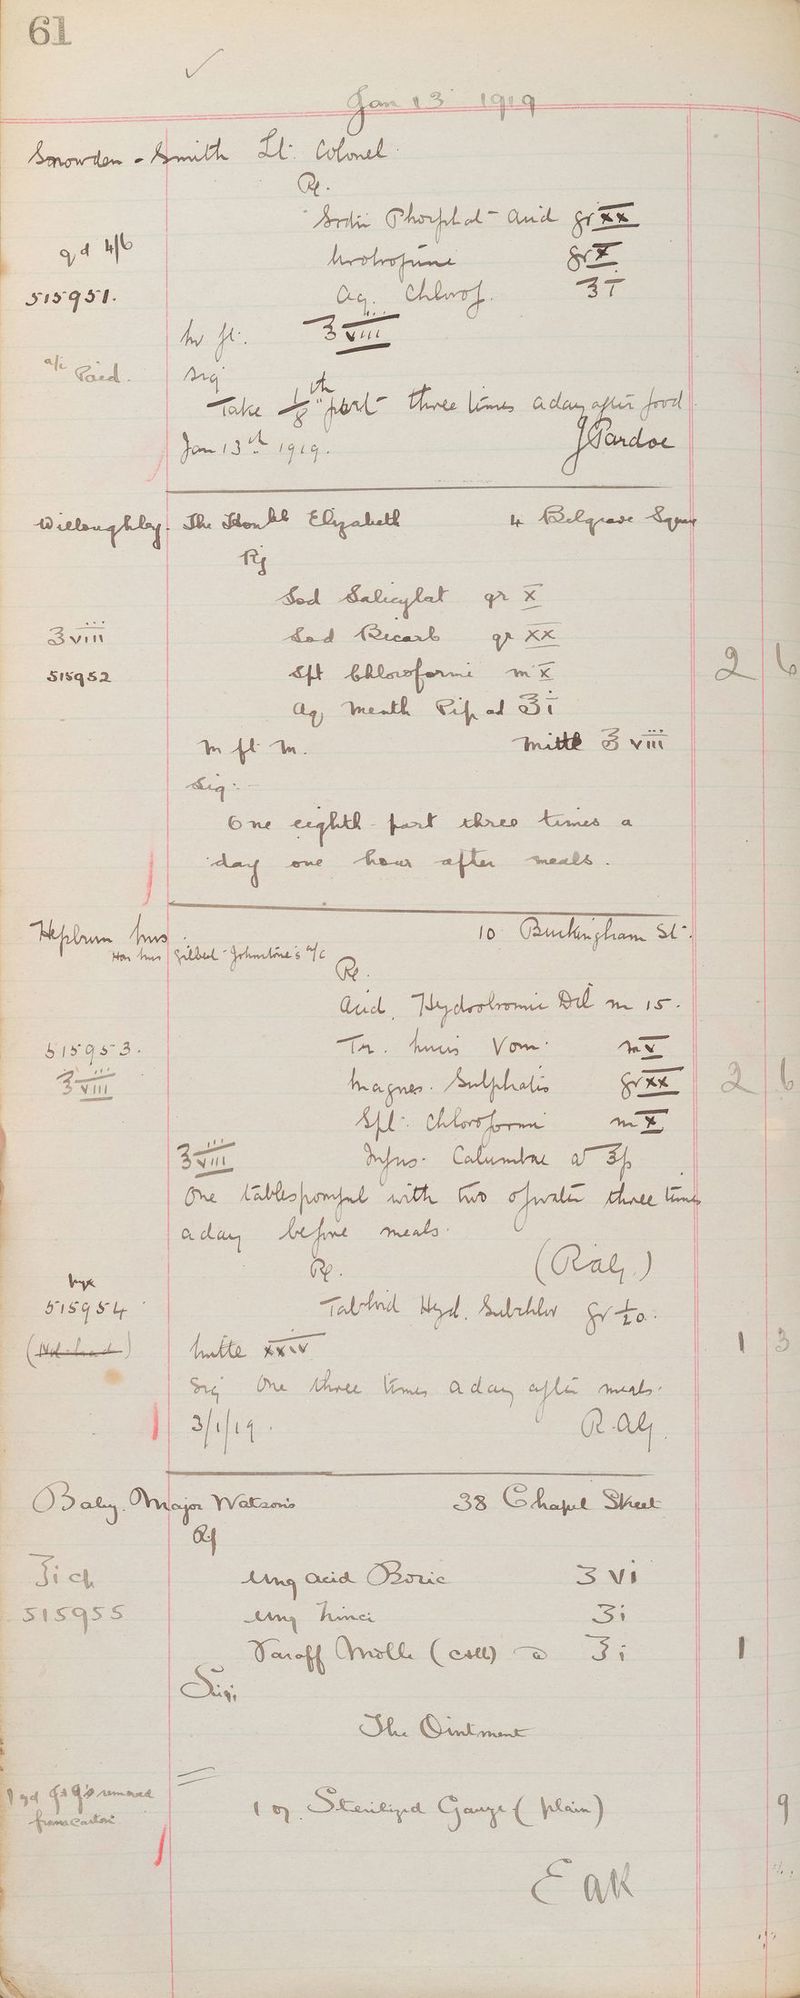 61
Jan 13 1919
Snowden-Smith Lt. Colonel.
Rx.
Sodii Phosphat Acid gr xx
qd 4/6 Urotropine gr x
515951. Aq. Chlorof. ʒ i
ft. ℥ viii
a/c Paid. Sig
Take 1/8th part three times a day after food.
Jan 13th 1919. J Pardoe
Willoughby. The Honble Elizabeth 4 Belgrave Square
Rx
Sod Salicylat gr x
℥ viii Sod Bicarb gr xx
515952 Spt Chloroformi m x 2 6
Aq Menth Pip ad ℥ i
M ft M. Mitte ℥ viii
Sig:
One eighth part three times a
day one hour after meals.
Hepburn Mrs 10 Buckingham St.
Hon Mrs Gilbert-Johnstone's a/c
Rx.
Acid. Hydrobromic Dil m 15.
515953. Tr. Nucis Vom. m v
℥ viii Magnes. Sulphatis gr xx 2 6
Spt. Chloroformi m x
℥ viii Infus. Calumbae ad ℥ ss
One tablespoonful with two of water three times
a day before meals.
Rx. (R.A.G.)
515954 Tabloid Hyd. Subchlor gr 1/20.
Mitte xxiv 1 3
Sig One three times a day after meals.
3/1/19. R.A.G.
Baby. Major Watson's 38 Chapel Street
Rx
℥ i Ung Acid Boric ʒ vi
515955 Ung Zinci ʒ i
Paraff Molle ʒ i 1
Sig:
The Ointment
removed
from carton
1 oz. Sterilized Gauze (plain) 9
E A K